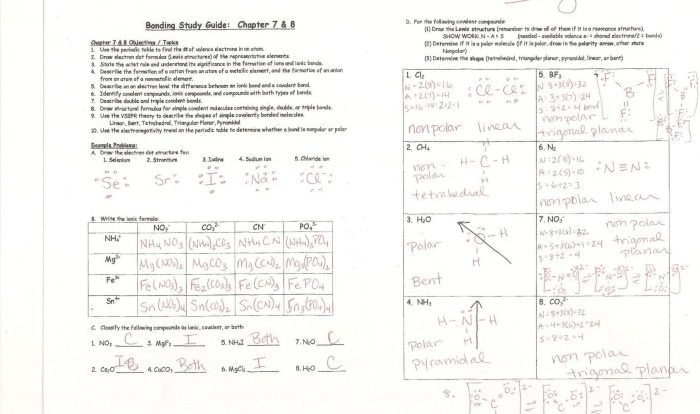 Bonding Study Guide: Chapter 7 & 8
Chapter 7 & 8 Objectives / Topics
1. Use the periodic table to find the # of valence electrons in an atom.
2. Draw electron dot formulas (Lewis structures) of the representative elements.
3. State the octet rule and understand its significance in the formation of ions and ionic bonds.
4. Describe the formation of a cation from an atom of a metallic element, and the formation of an anion
from an atom of a nonmetallic element.
5. Describe on an electron level the difference between an ionic bond and a covalent bond.
6. Identify covalent compounds, ionic compounds, and compounds with both types of bonds.
7. Describe double and triple covalent bonds.
8. Draw structural formulas for simple covalent molecules containing single, double, or triple bonds.
9. Use the VSEPR theory to describe the shapes of simple covalently bonded molecules.
Linear, Bent, Tetrahedral, Triangular Planar, Pyramidal
10. Use the electronegativity trend on the periodic table to determine whether a bond is nonpolar or polar
Example Problems:
A. Draw the electron dot structure for:
1. Selenium 2. Strontium 3. Iodine 4. Sodium ion 5. Chloride ion
Se Sr I Na Cl
B. Write the ionic formula:
NO₃⁻ CO₃²⁻ CN⁻ PO₄³⁻
NH₄⁺ NH₄NO₃ (NH₄)₂CO₃ NH₄CN (NH₄)₃PO₄
Mg²⁺ Mg(NO₃)₂ MgCO₃ Mg(CN)₂ Mg₃(PO₄)₂
Fe³⁺ Fe(NO₃)₃ Fe₂(CO₃)₃ Fe(CN)₃ FePO₄
Sn⁴⁺ Sn(NO₃)₄ Sn(CO₃)₂ Sn(CN)₄ Sn₃(PO₄)₄
C. Classify the following compounds as ionic, covalent, or both
1. NO₂ C 3. MgF₂ I 5. NH₄I Both 7. N₂O C
2. Cs₂O I 4. CaCO₃ Both 6. MgCl₂ I 8. H₂O C
D. For the following covalent compounds:
(1) Draw the Lewis structure (remember to draw all of them if it is a resonance structure).
SHOW WORK: N - A = S (needed - available valence e- = shared electrons/2 = bonds)
(2) Determine if it is a polar molecule (if it is polar, draw in the polarity arrow, other state
Nonpolar)
(3) Determine the shape (tetrahedral, triangular planar, pyramidal, linear, or bent)
1. Cl₂
N = 2(8)=16
A = 2(7)=14
S=16-14=2÷2=1
Cl-Cl
nonpolar linear
5. BF₃
S=8÷2=4 bond
F B F
F
nonpolar
trigonal planar
2. CH₄
H-C-H
H
non-
polar
tetrahedral
6. N₂
N=2(8)=16
A=2(5)=10
S=6÷2=3
N≡N
nonpolar linear
3. H₂O
O-H
H
Polar
Bent
7. NO₃⁻
non polar
N=8+3(8)=32
A=5+3(6)+1=24
S=8÷2=4
trigonal
planar
4. NH₃
H-N-H
H
Polar
pyramidal
8. CO₃²⁻
N=8+3(8)=32
A=4+3(6)+2=24
S=8÷2=4
non polar
trigonal planar
8.